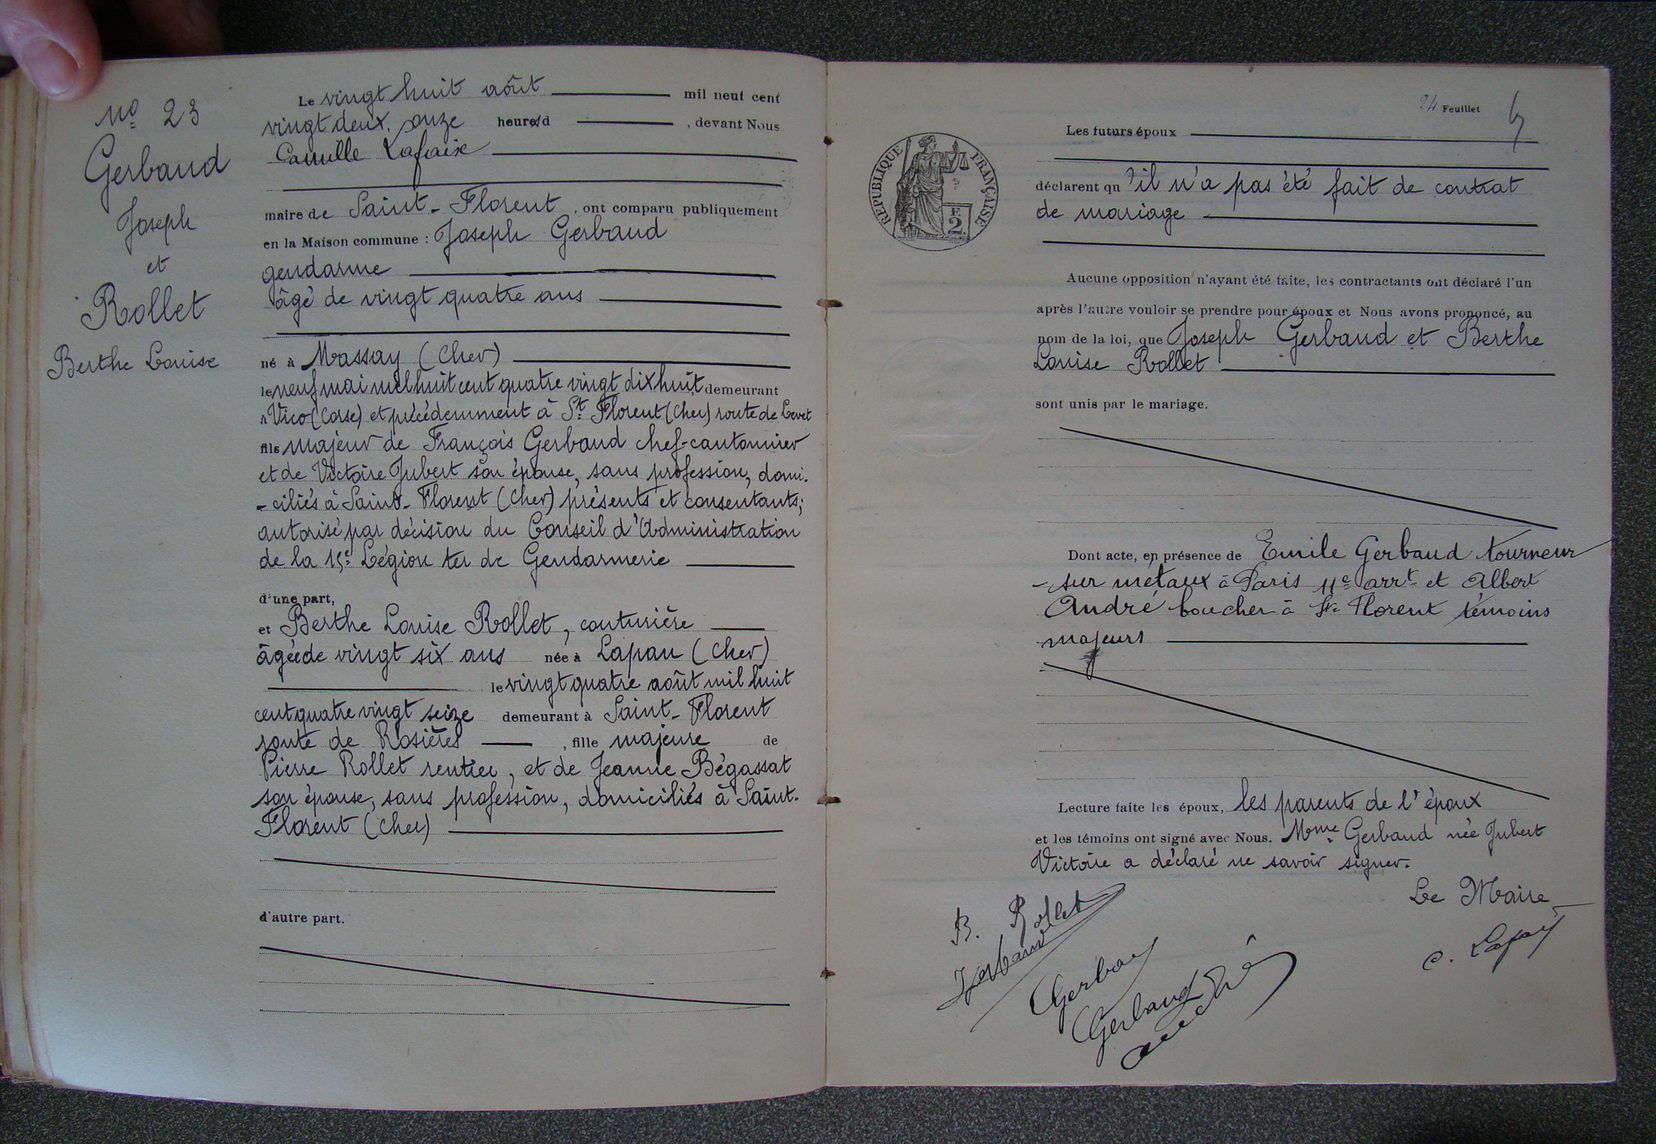 No 23
Gerbaud
Joseph
et
Rollet
Berthe Louise
Le vingt huit août mil neuf cent
vingt deux, onze heures, devant Nous
Camille Lafaix
maire de Saint-Florent, ont comparu publiquement
en la Maison commune : Joseph Gerbaud
gendarme
âgé de vingt quatre ans
né à Massay (Cher)
le neuf mai mil huit cent quatre vingt dix huit, demeurant
à Vico (Corse) et précédemment à St Florent (Cher) route de Levet
fils majeur de François Gerbaud chef-cantonnier
et de Victoire Jubert son épouse, sans profession, domi-
-ciliés à Saint-Florent (Cher) présents et consentants;
autorisé par décision du Conseil d'Administration
de la 15e Légion ter de Gendarmerie
d'une part,
et Berthe Louise Rollet, couturière
âgée de vingt six ans née à Lapan (Cher)
le vingt quatre août mil huit
cent quatre vingt seize demeurant à Saint-Florent
route de Rosières, fille majeure de
Pierre Rollet rentier, et de Jeanne Bégassat
son épouse, sans profession, domiciliés à Saint-
Florent (Cher)
d'autre part.
24 Feuillet
RÉPUBLIQUE FRANÇAISE
2
Les futurs époux
déclarent qu'il n'a pas été fait de contrat
de mariage
Aucune opposition n'ayant été faite, les contractants ont déclaré l'un
après l'autre vouloir se prendre pour époux et Nous avons prononcé, au
nom de la loi, que Joseph Gerbaud et Berthe
Louise Rollet
sont unis par le mariage.
Dont acte, en présence de Emile Gerbaud tourneur
-sur métaux à Paris 11e arrt et Albert
André boucher à St Florent témoins
majeurs
Lecture faite les époux, les parents de l'époux
et les témoins ont signé avec Nous. Mme Gerbaud née Jubert
Victoire a déclaré ne savoir signer.
Le Maire
B. Rollet
C. Lafaix
Gerbaud
Gerbaud
Gerbaud
André